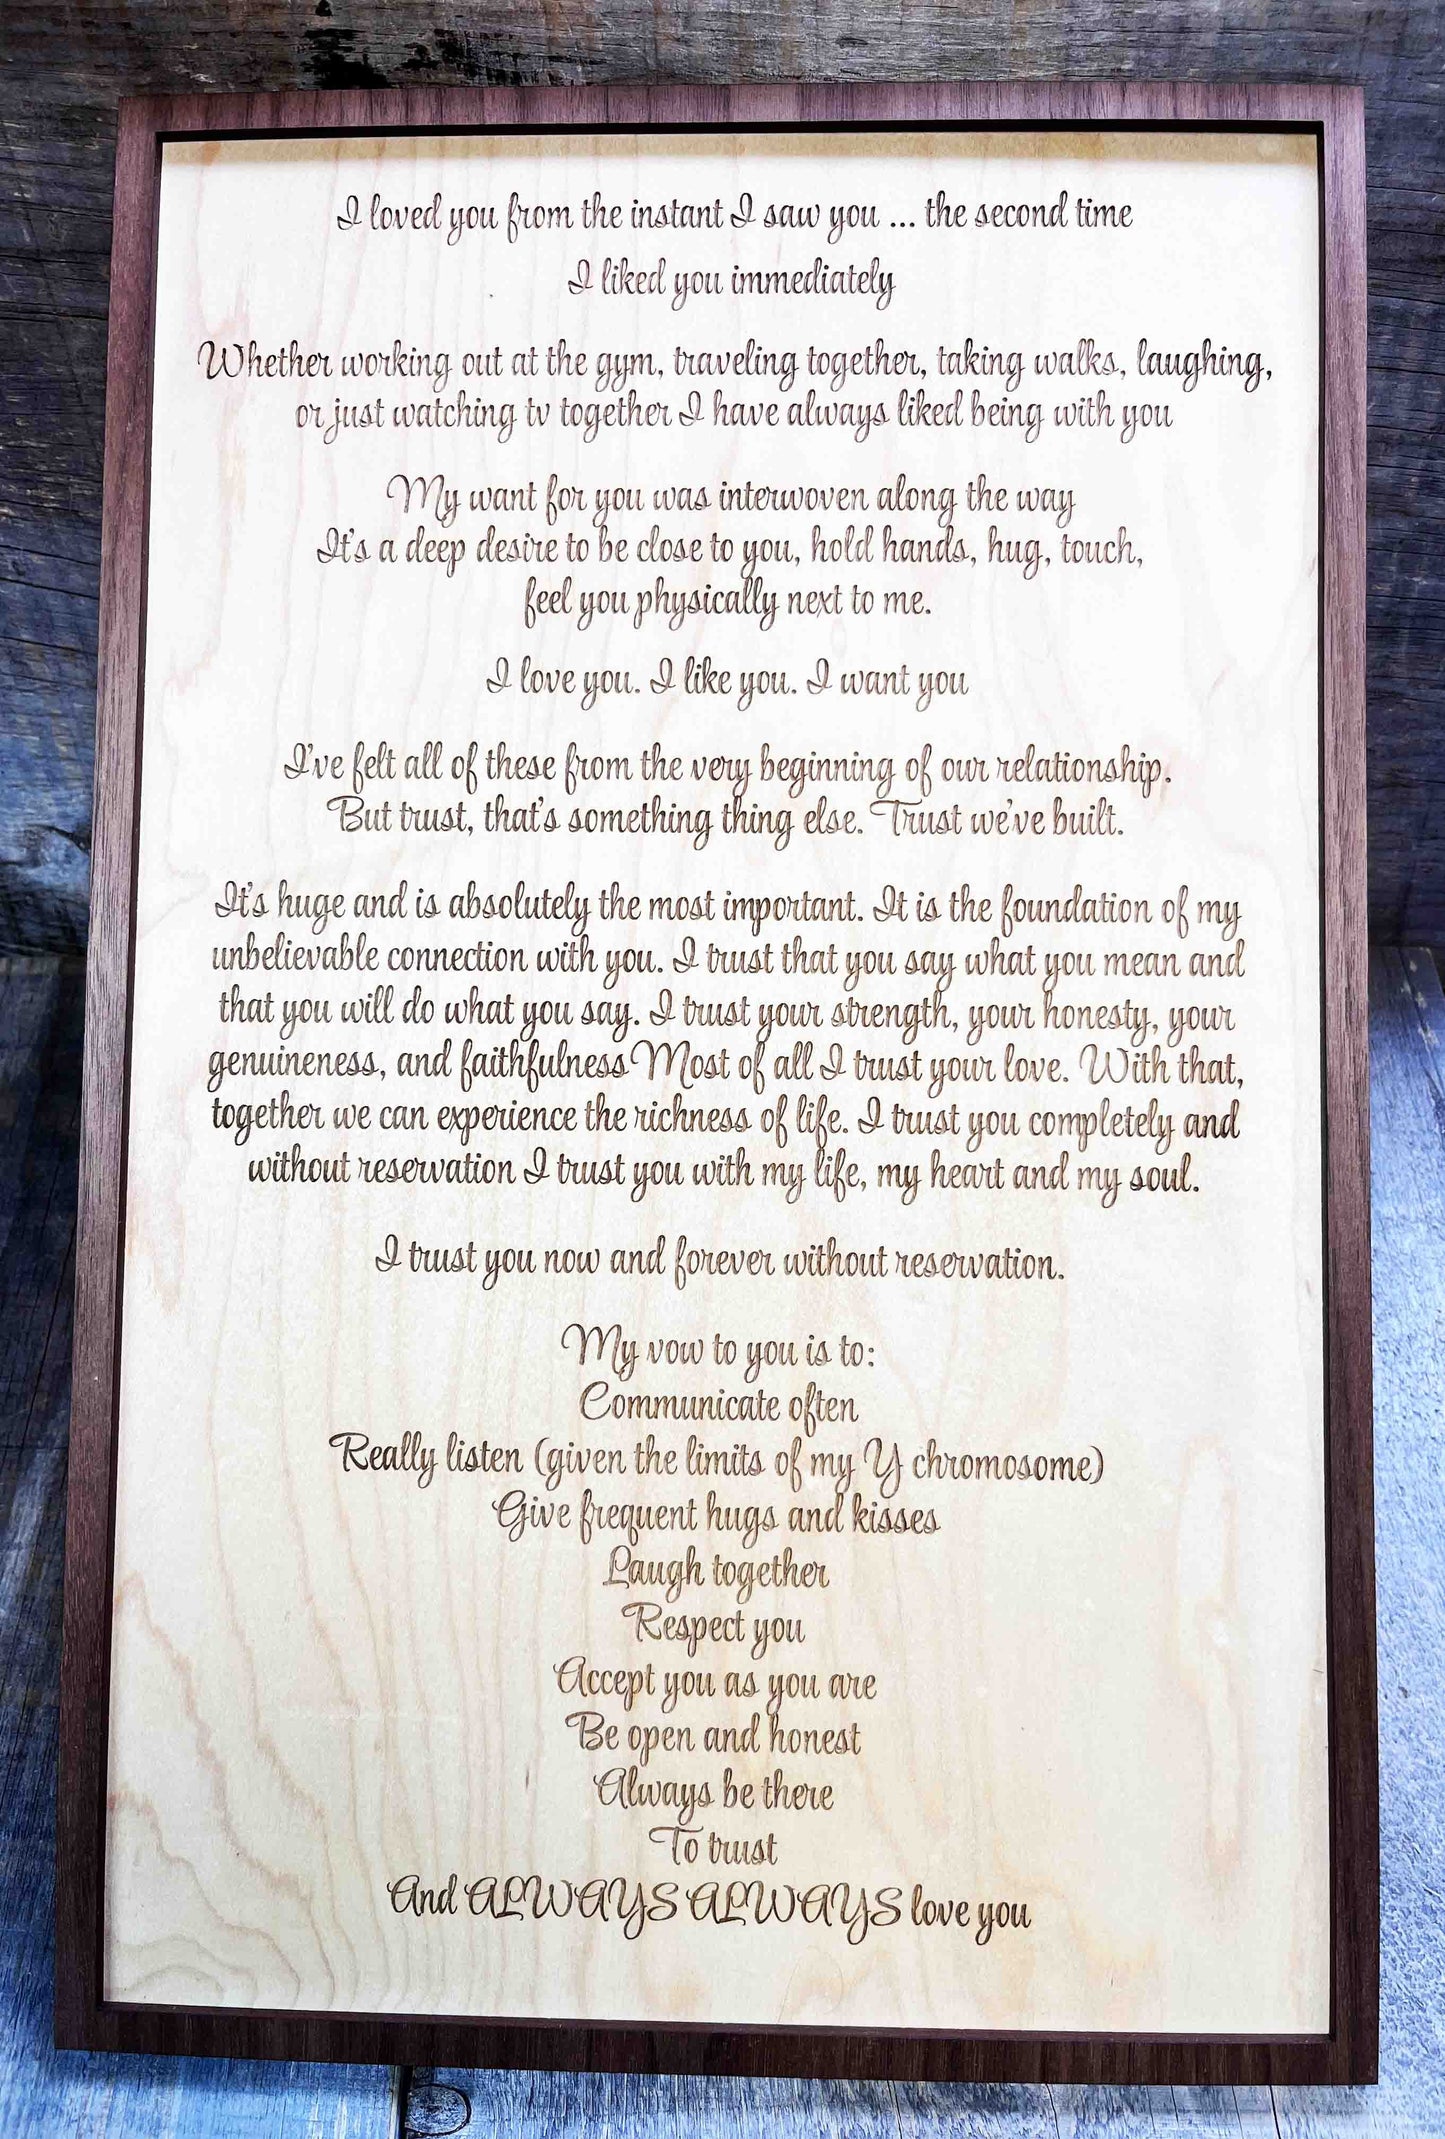 I loved you from the instant I saw you ... the second time
I liked you immediately
Whether working out at the gym, traveling together, taking walks, laughing,
or just watching tv together I have always liked being with you
My want for you was interwoven along the way
It's a deep desire to be close to you, hold hands, hug, touch,
feel you physically next to me.
I love you. I like you. I want you
I've felt all of these from the very beginning of our relationship.
But trust, that's something thing else. Trust we've built.
It's huge and is absolutely the most important. It is the foundation of my
unbelievable connection with you. I trust that you say what you mean and
that you will do what you say. I trust your strength, your honesty, your
genuineness, and faithfulness Most of all I trust your love. With that,
together we can experience the richness of life. I trust you completely and
without reservation I trust you with my life, my heart and my soul.
I trust you now and forever without reservation.
My vow to you is to:
Communicate often
Really listen (given the limits of my Y chromosome)
Give frequent hugs and kisses
Laugh together
Respect you
Accept you as you are
Be open and honest
Always be there
To trust
And ALWAYS ALWAYS love you